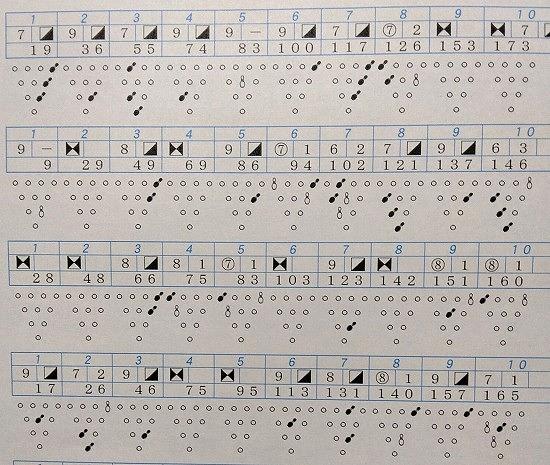 1 2 3 4 5 6 7 8 9 10
7 ◪ 9 ◪ 7 ◪ 9 ◪ 9 − 9 ◪ 7 ◪ ⑦ 2 ⧓ ⧓ 7 ◪
19 36 55 74 83 100 117 126 153 173
1 2 3 4 5 6 7 8 9 10
9 − ⧓ 8 ◪ ⧓ 9 ◪ ⑦ 1 6 2 7 ◪ 9 ◪ 6 3
9 29 49 69 86 94 102 121 137 146
1 2 3 4 5 6 7 8 9 10
⧓ ⧓ 8 ◪ 8 1 ⑦ 1 ⧓ 9 ◪ ⧓ ⑧ 1 ⑧ 1
28 48 66 75 83 103 123 142 151 160
1 2 3 4 5 6 7 8 9 10
9 ◪ 7 2 9 ◪ ⧓ ⧓ 9 ◪ 8 ◪ ⑧ 1 9 ◪ 7 1
17 26 46 75 95 113 131 140 157 165